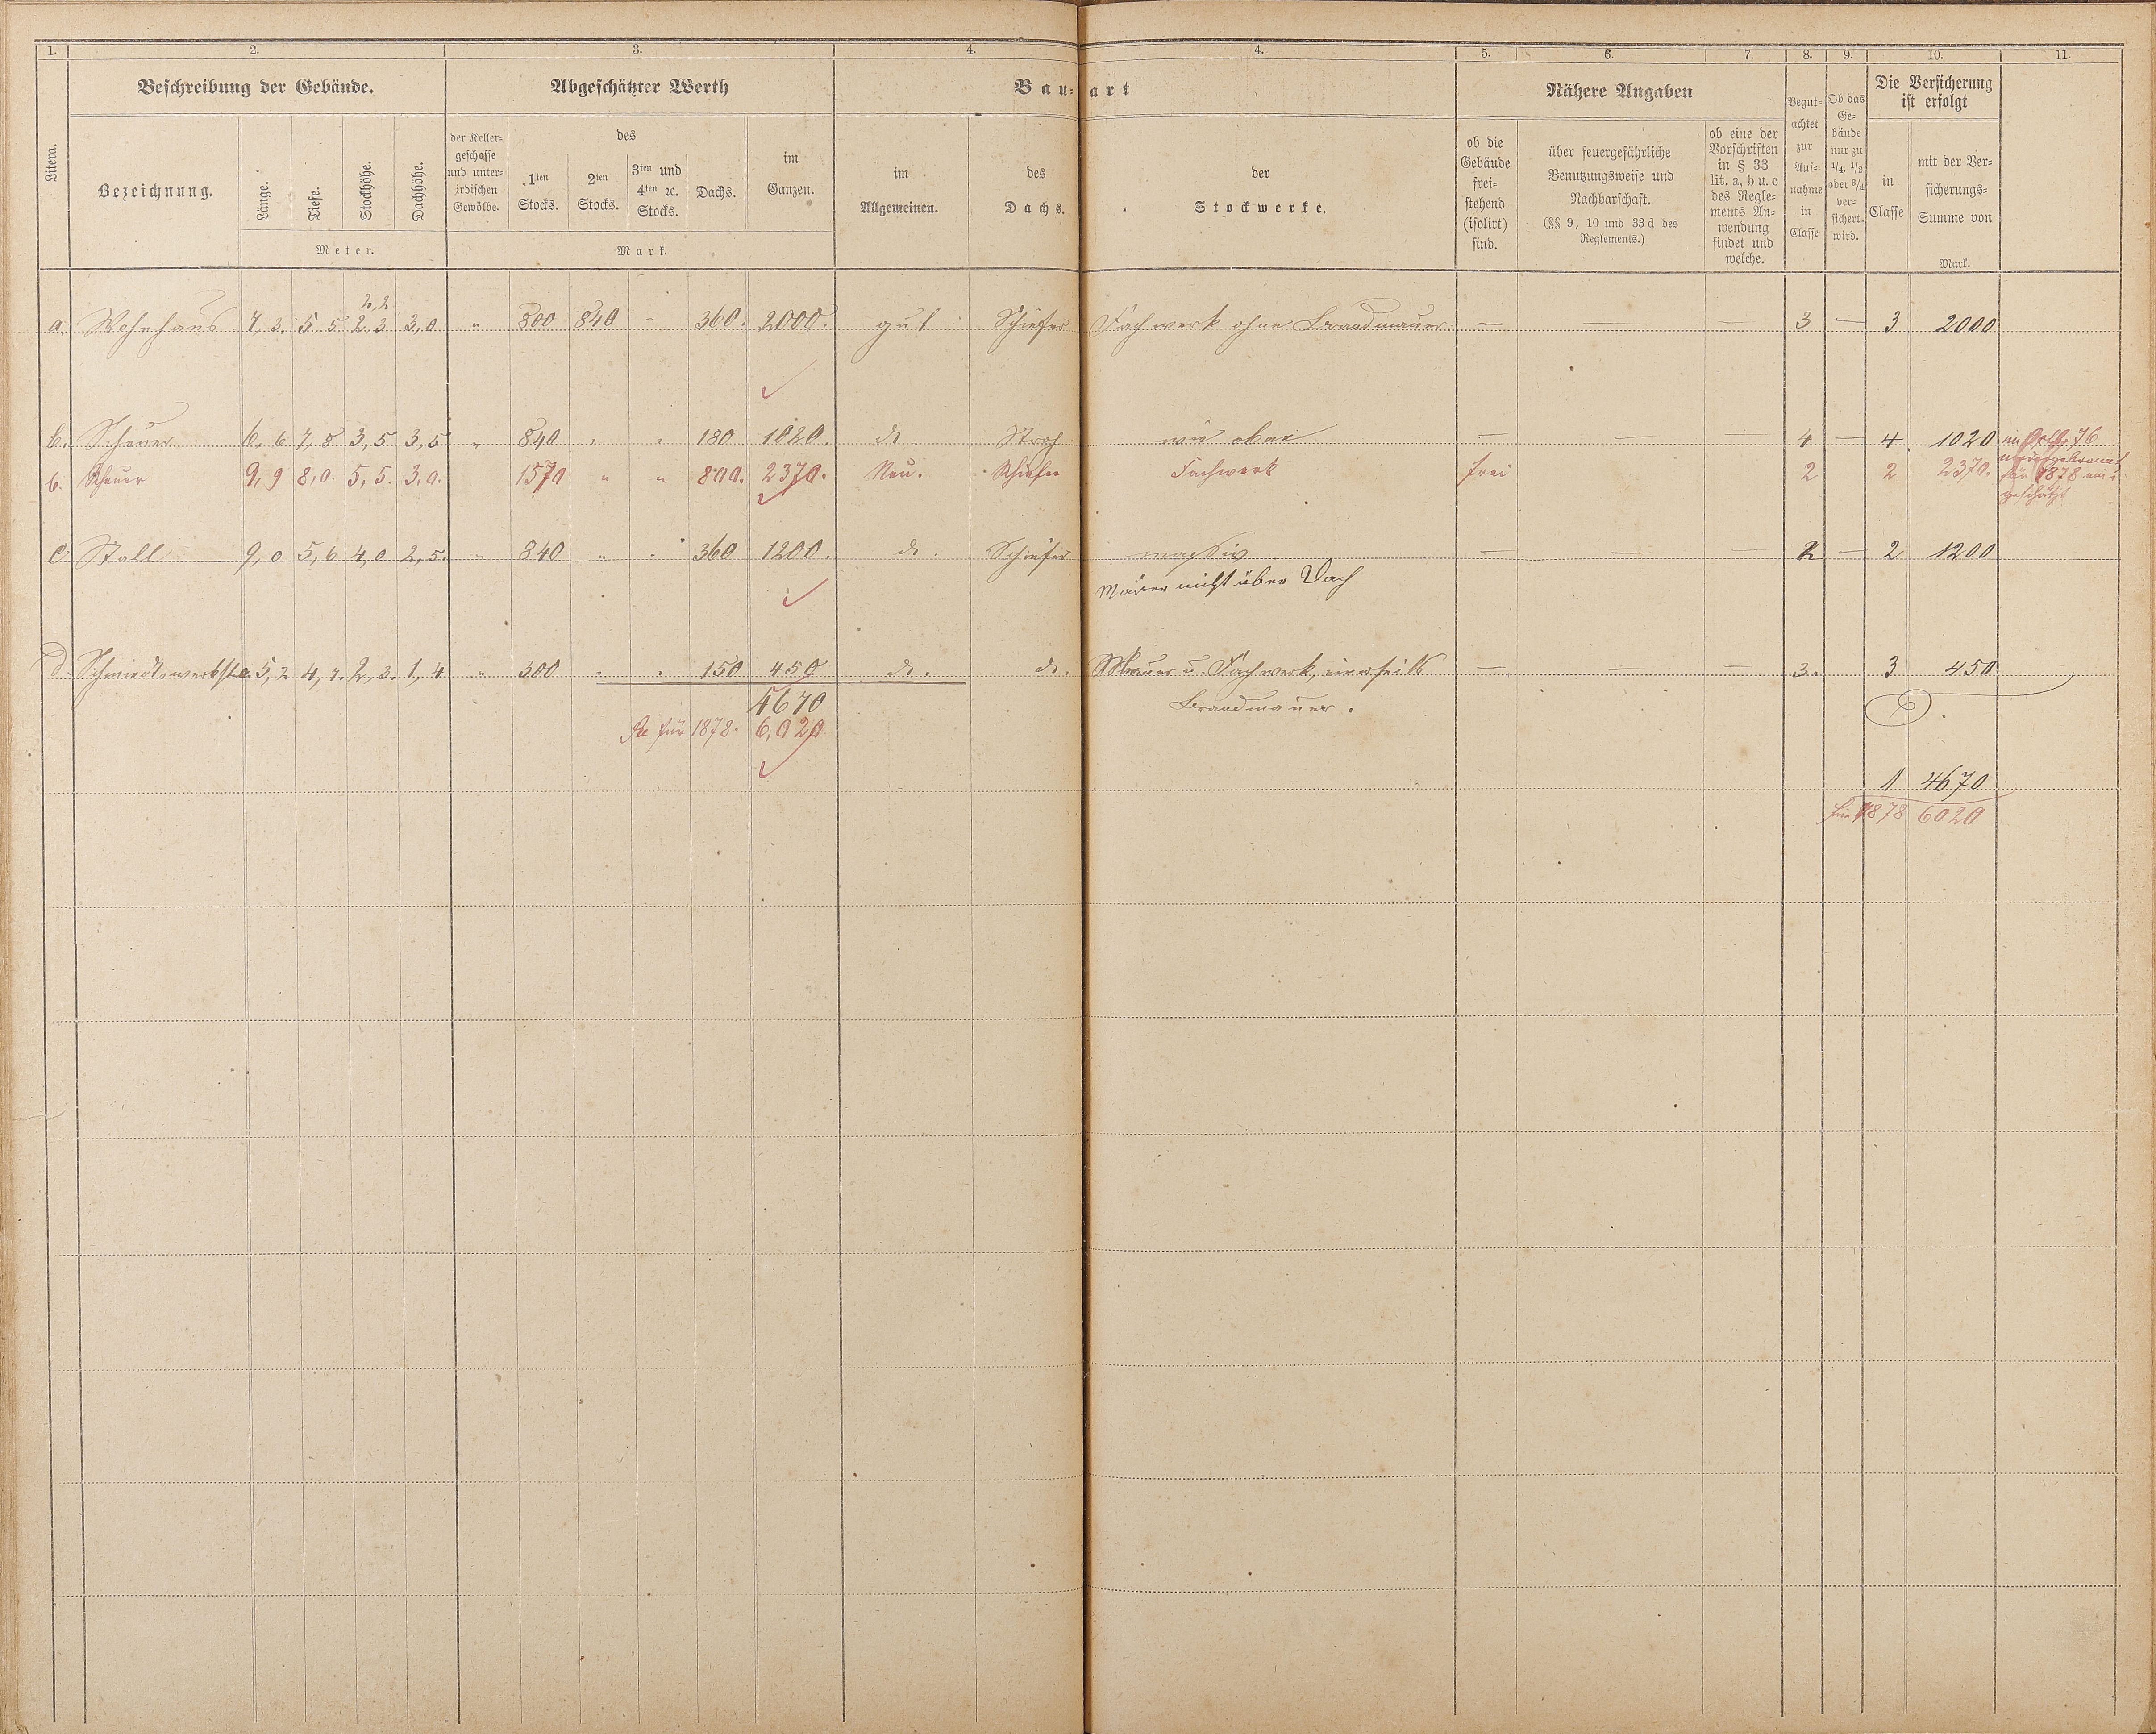 1. 2. 3. 4. 4. 5. 6. 7. 8. 9. 10. 11.
Beschreibung der Gebäude. Abgeschätzter Werth Bau-art Nähere Angaben
Litera.
Bezeichnung.
Länge.
Tiefe.
Stockhöhe.
Dachhöhe.
Meter.
der Keller-
geschosse
und unter-
irdischen
Gewölbe.
des
1ten
Stocks.
2ten
Stocks.
3ten und
4ten ꝛc.
Stocks.
Dachs.
im
Ganzen.
Mark.
im
Allgemeinen.
des
Dachs.
der
Stockwerke.
ob die
Gebäude
frei-
stehend
(isolirt)
sind.
über feuergefährliche
Benutzungsweise und
Nachbarschaft.
(§§ 9, 10 und 33 d des
Reglements.)
ob eine der
Vorschriften
in § 33
lit. a, b u. c
des Regle-
ments An-
wendung
findet und
welche.
Begut-
achtet
zur
Auf-
nahme
in
Classe
Ob das
Ge-
bäude
nur zu
1/4, 1/2
oder 3/4
ver-
sichert
wird.
Die Versicherung
ist erfolgt
in
Classe
mit der Ver-
sicherungs-
Summe von
Mark.
2,2
a. Wohnhaus 7,3. 5,5 2,3 3,0 " 800 840 - 360. 2000. gut Schiefer Fachwerk ohne Brandmauer — — — 3 — 3 2000
b. Scheuer 6,6 7,8 3,5 3,5 " 840 " " 180 1020. do. Stroh wie oben — — — 4 — 4 1020 76
b. Scheuer 9,9 8,0. 5,5. 3,0. 1570 " " 800. 2370. Neu. Schiefer Fachwerk frei 2 2 2370. für 1878
geschätzt
c. Stall 9,0 5,6 4,0 2,5. " 840 " " 360 1200. do. Schiefer massiv — — 2 — 2 1200
Mauer nicht über Dach
d. Schmiedewerkst. 5,2 4,7. 2,3. 1,4 " 300 " " 150 450 do. do. Mauer u. Fachwerk, einerseits — — — 3. 3 450
4670 Brandmauer.
für 1878. 6,020
4670
für 1878 6020